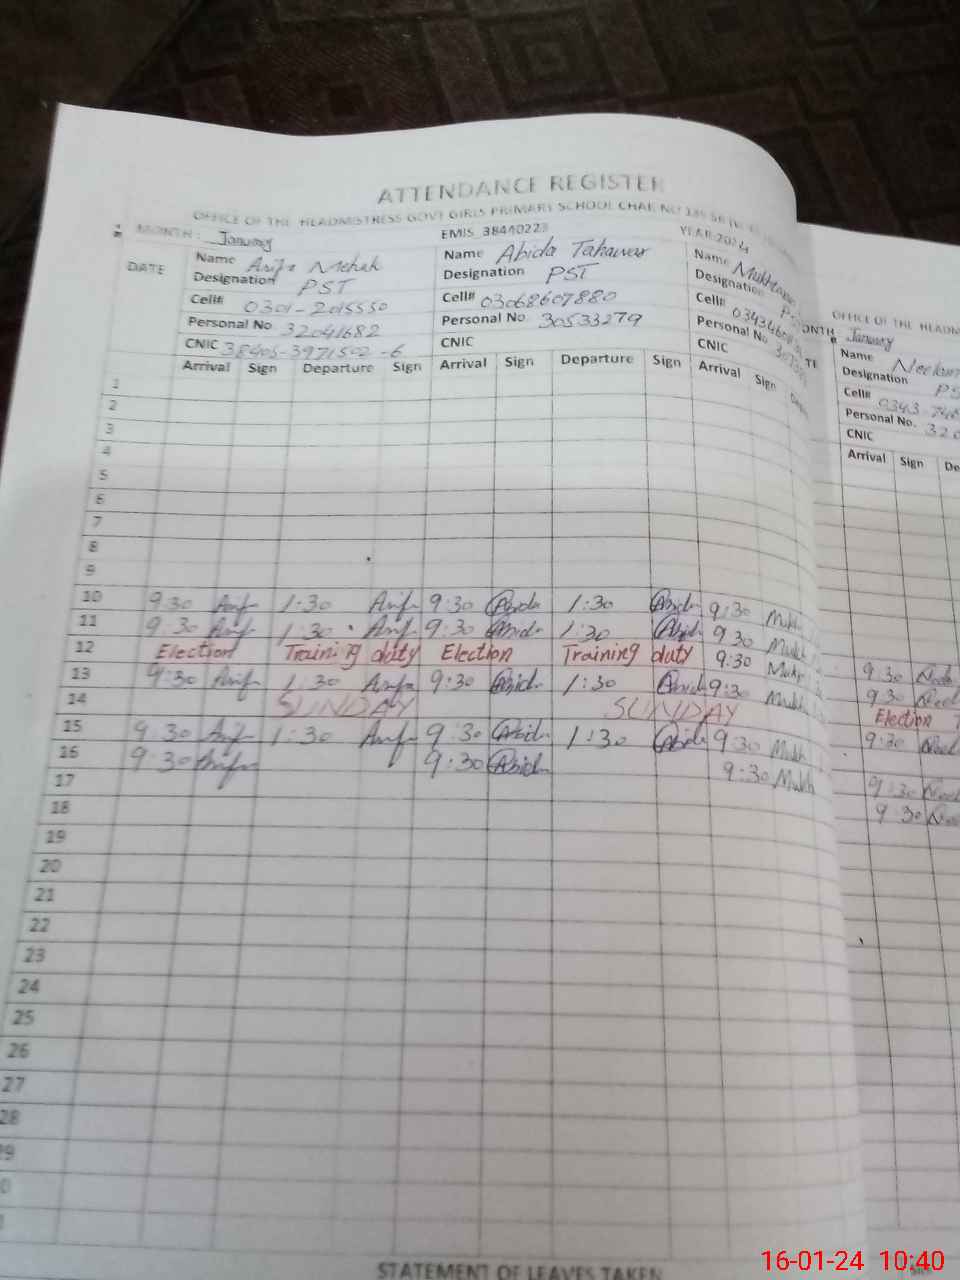 ATTENDANCE REGISTER
OFFICE OF THE HEADMISTRESS GOVT GIRLS PRIMARY SCHOOL CHAK NO
MONTH: January EMIS 38440223 YEAR 2024
DATE
Name Arifa Mehak Name Abida Tahawar Name
Designation PST Designation PST Designation
Cell# 0301-2015550 Cell# 03068607880 Cell#
Personal No 32041682 Personal No 30533279 Personal No
CNIC 38405-3971502-6 CNIC CNIC
Arrival Sign Departure Sign Arrival Sign Departure Sign Arrival Sign
1
2
3
4
5
6
7
8
9
10 9:30 Arif 1:30 Arif 9:30 Abida 1:30 Abida 9:30 Mukh
11 9:30 Arif 1:30 Arif 9:30 Abida 1:30 Abida 9:30 Mukh
12 Election Training duty Election Training duty 9:30 Mukh
13 9:30 Arif 1:30 Arifa 9:30 Abida 1:30 Abida 9:30 Mukh
14 SUNDAY SUNDAY
15 9:30 Arif 1:30 Arif 9:30 Abida 1:30 Abida 9:30 Mukh
16 9:30 Arifa 9:30 Abida 9:30 Mukh
17
18
19
20
21
22
23
24
25
26
27
28
STATEMENT OF LEAVES TAKEN
OFFICE OF THE HEADM
January
Name Neelam
Designation PS
Cell# 0343-748
Personal No. 320
CNIC
Arrival Sign De
9:30
9:30
Election
9:30
9:30
9:30
16-01-24 10:40